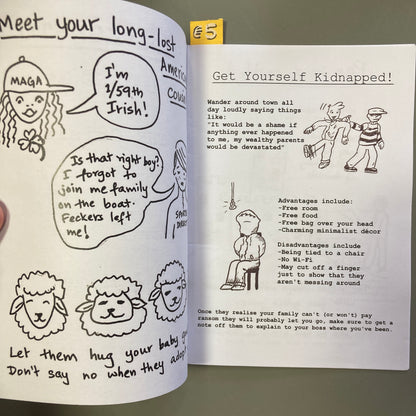 Meet your long-lost
American
cousin
MAGA
I'm
1/59th
Irish!
Is that right boy?
I forgot to
join me family
on the boat.
Feckers left
me!
Let them hug your baby
Don't say no when they
€5
Get Yourself Kidnapped!
Wander around town all
day loudly saying things
like:
"It would be a shame if
anything ever happened
to me, my wealthy parents
would be devastated"
Advantages include:
-Free room
-Free food
-Free bag over your head
-Charming minimalist décor
Disadvantages include
-Being tied to a chair
-No Wi-Fi
-May cut off a finger
just to show that they
aren't messing around
Once they realise your family can't (or won't) pay
ransom they will probably let you go, make sure to get a
note off them to explain to your boss where you've been.